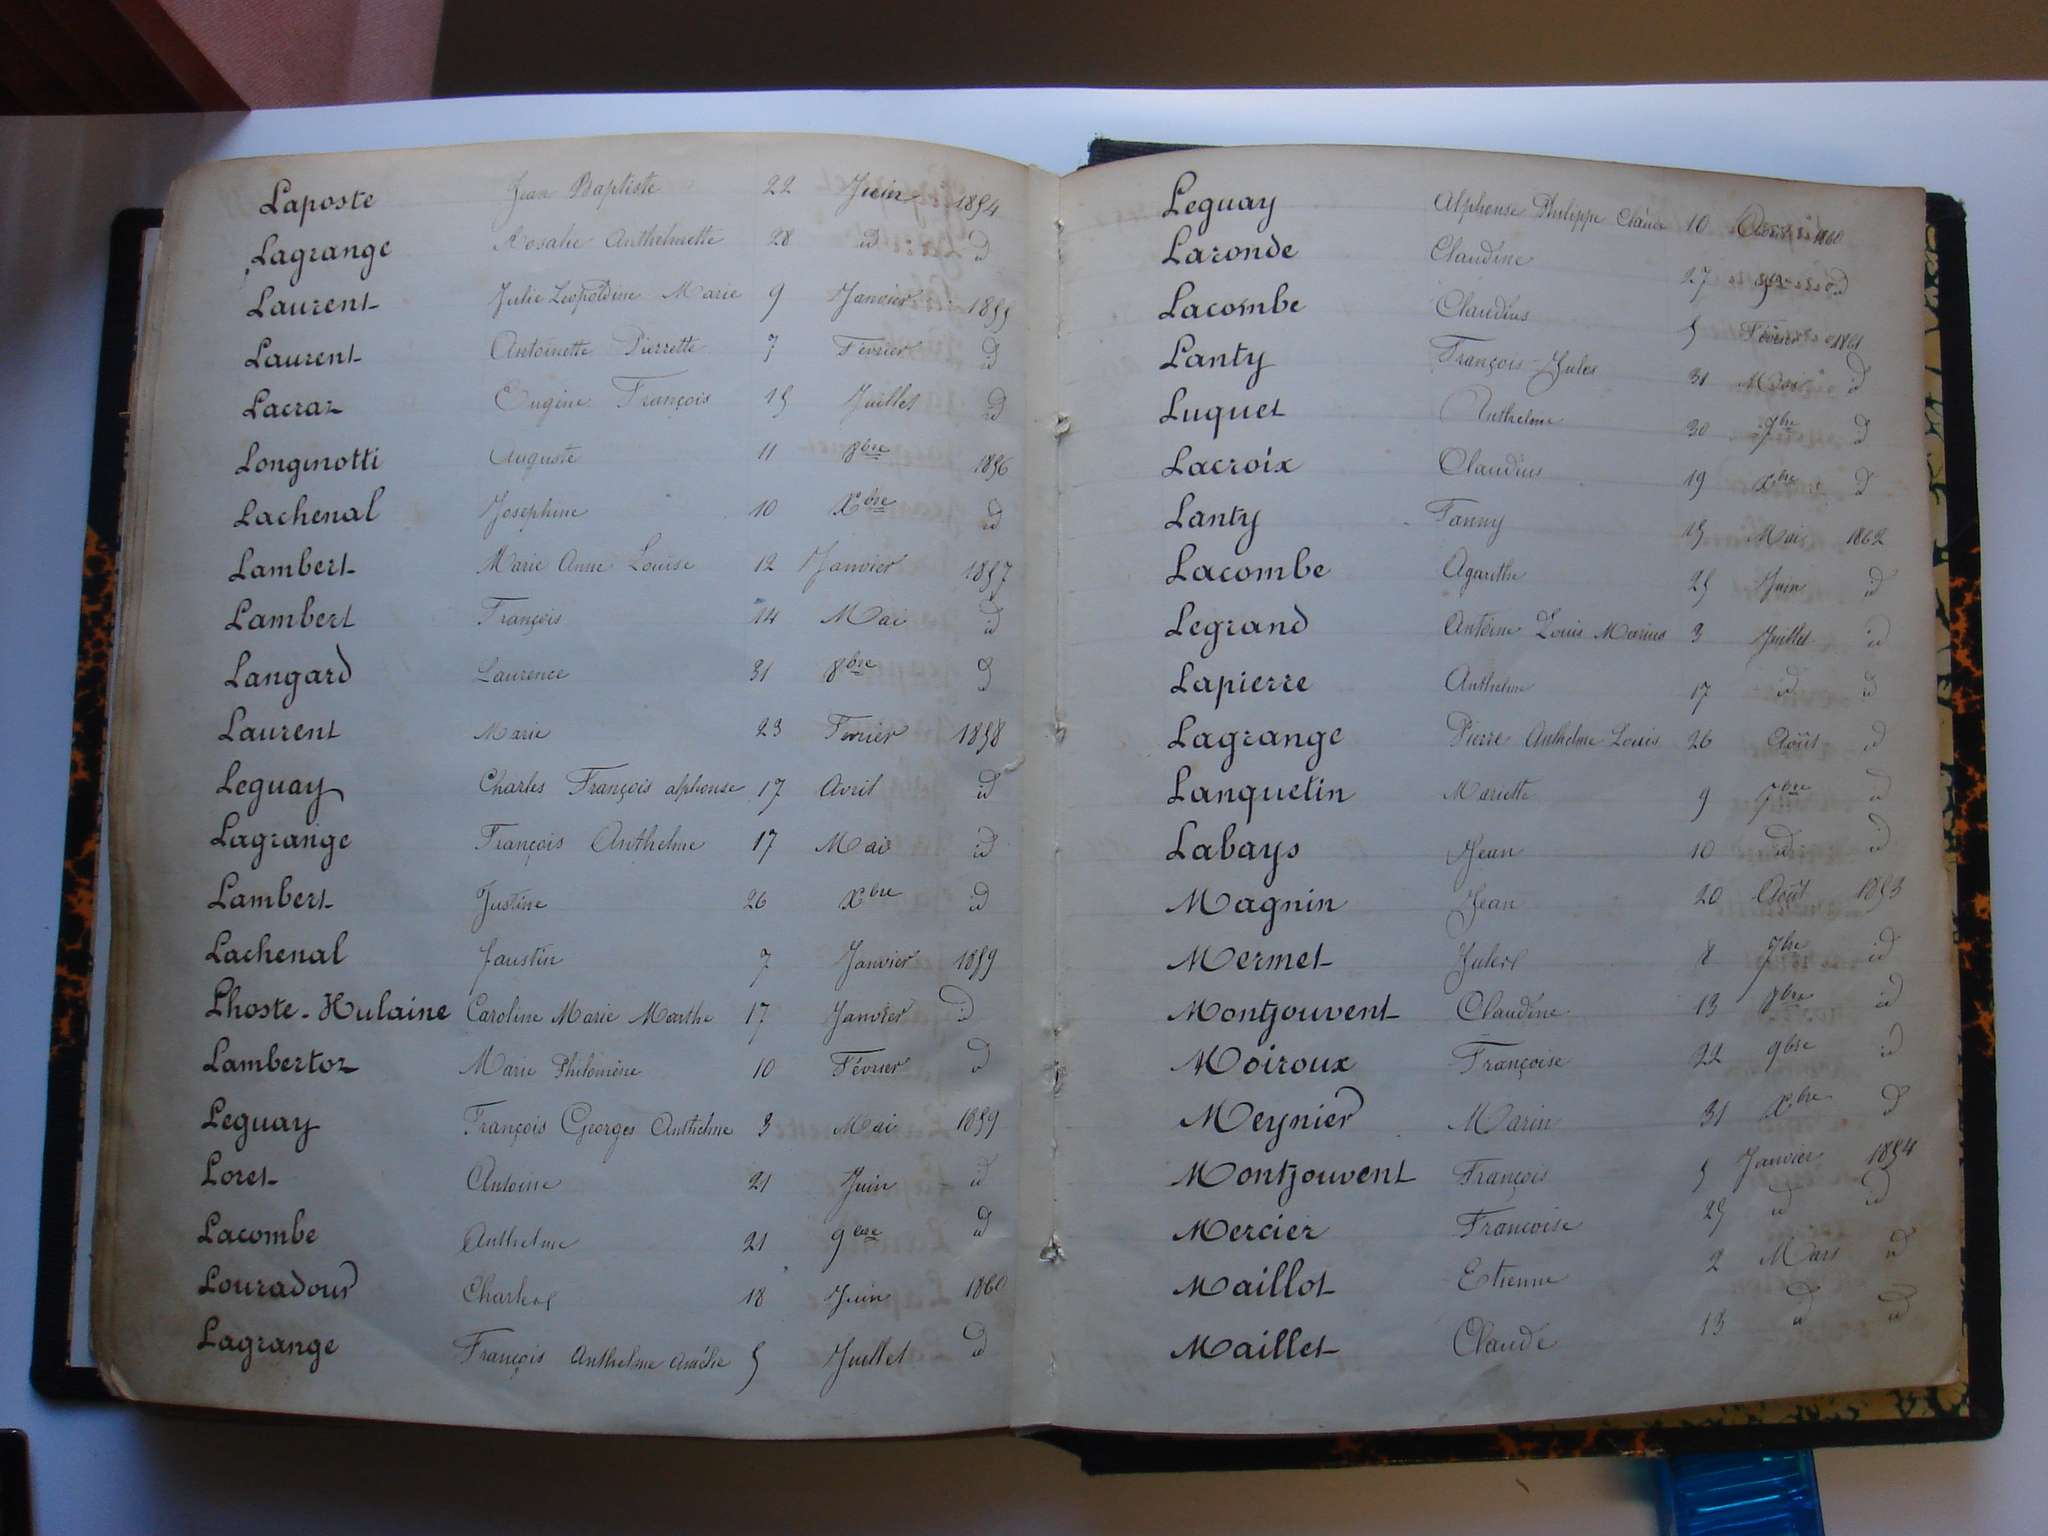 Laposte Jean Baptiste 22 Juin 1854
Lagrange Rosalie Anthelmette 28 id id
Laurent Julie Léopoldine Marie 9 Janvier 1855
Laurent Antoinette Pierrette 7 Février id
Lacraz Eugène François 15 Juillet id
Longinotti Auguste 11 8bre 1856
Lachenal Josephine 10 Xbre id
Lambert Marie Anne Louise 12 Janvier 1857
Lambert François 14 Mai id
Langard Laurence 31 8bre id
Laurent Marie 23 Fevrier 1858
Leguay Charles François alphonse 17 Avril id
Lagrange François Anthelme 17 Mai id
Lambert Justine 26 Xbre id
Lachenal Faustin 7 Janvier 1859
Lhoste-Hulaine Caroline Marie Marthe 17 Janvier id
Lambertoz Marie Philomène 10 Février id
Leguay François Georges Anthelme 3 Mai 1859
Loret Antoine 21 Juin id
Lacombe Anthelme 21 9bre id
Louradour Charles 18 Juin 1860
Lagrange François Anthelme Amélie 5 Juillet id
Leguay Alphonse Philippe Claude 10 Août 1860
Laronde Claudine 27 9bre id
Lacombe Claudius 5 Février 1861
Lanty François-Jules 31 Mai id
Luquet Anthelme 30 7bre id
Lacroix Claudius 19 Xbre id
Lanty Fanny 15 Mai 1862
Lacombe Agarithe 25 Juin id
Legrand Antoine Louis Marius 3 Juillet id
Lapierre Anthelme 17 id id
Lagrange Pierre Anthelme Louis 26 Août id
Lanquetin Mariette 9 7bre id
Labays Jean 10 id id
Magnin Jean 20 Août 1853
Mermet Jules 8 7bre id
Montjouvent Claudine 13 8bre id
Moiroux Françoise 22 9bre id
Meynier Marin 31 Xbre id
Montjouvent François 5 Janvier 1854
Mercier Francoise 25 id id
Maillot Etienne 2 Mars id
Maillet Claude 13 id id